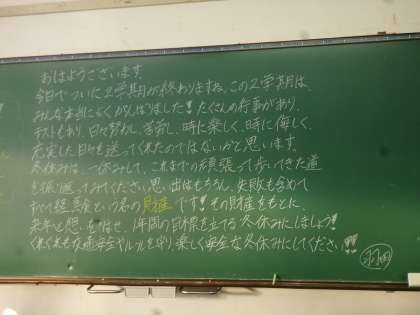 おはようございます。
今日でついに2学期が終わりますね。この2学期は、
みんな本当によくがんばりました!!たくさんの行事があり、
テストもあり、日々努力し、苦労し、時に楽しく、時に悔しく、
充実した日々を送ってくれたのではないかと思います。
冬休みは、一休みして、これまでの頑張って歩いてきた道
を振り返ってみてください。思い出はもちろん、失敗も含めて
すべて経験という名の財産です!!その財産をもとに、
来年を想いをはせ、1年間の目標を立てる冬休みにしましょう!!
くれぐれも交通安全やルールを守り、楽しく安全な冬休みにしてください!!!